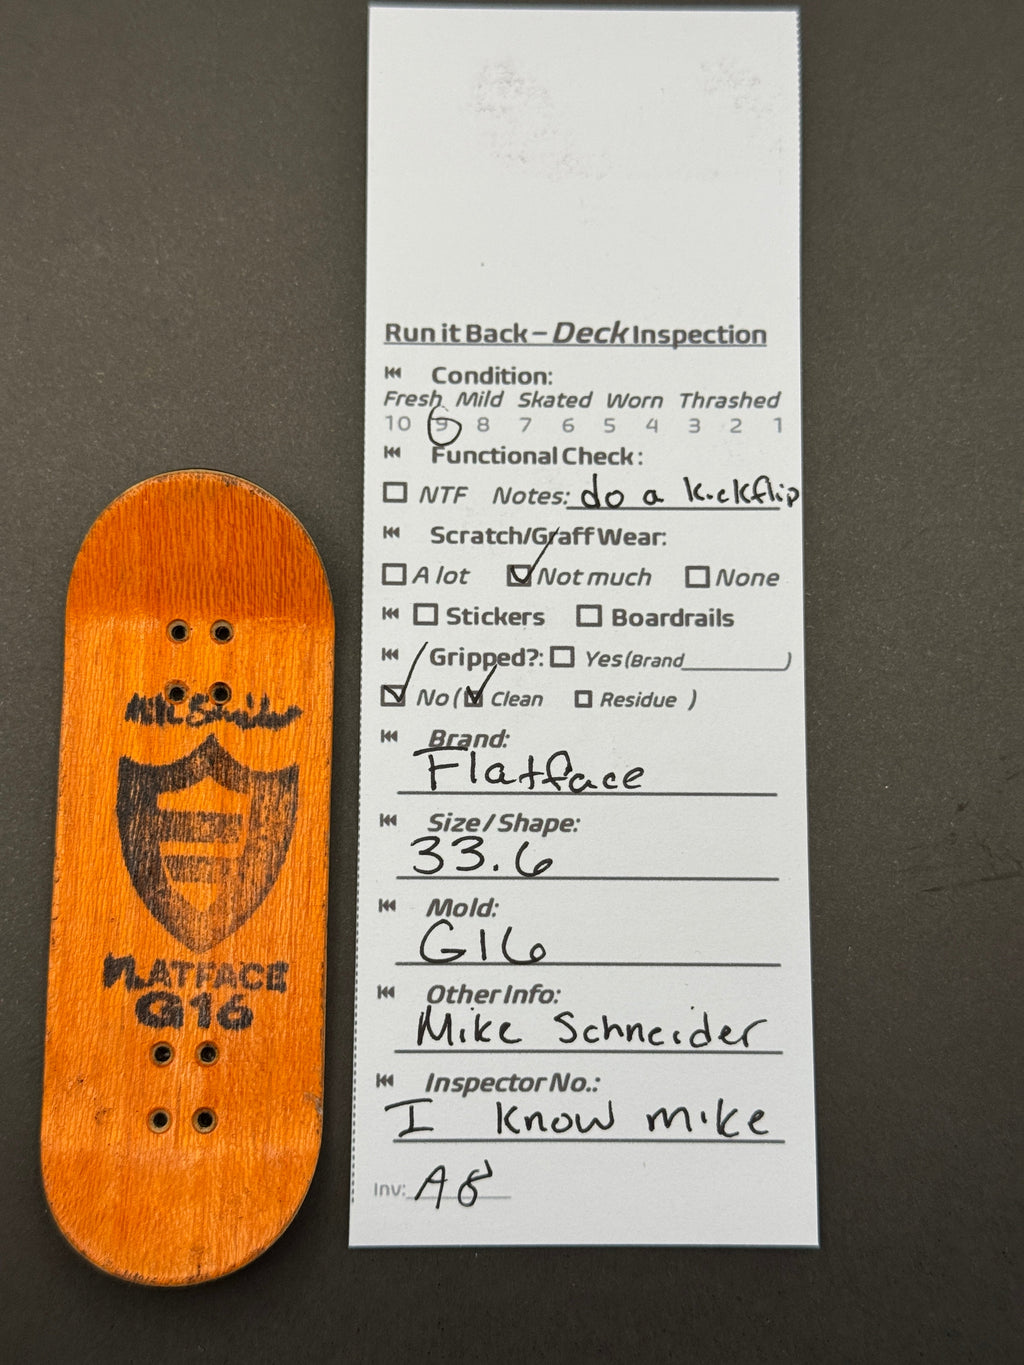 Run it Back – Deck Inspection
Condition:
Fresh Mild Skated Worn Thrashed
10 9 8 7 6 5 4 3 2 1
Functional Check:
NTF Notes: do a kickflip
Scratch/Graff Wear:
A lot Not much None
Stickers Boardrails
Gripped?: Yes (Brand__________)
No ( Clean Residue )
Brand:
Flatface
Size / Shape:
33.6
Mold:
G16
Other Info:
Mike Schneider
Inspector No.:
I know mike
Inv: A8
FLATFACE
G16